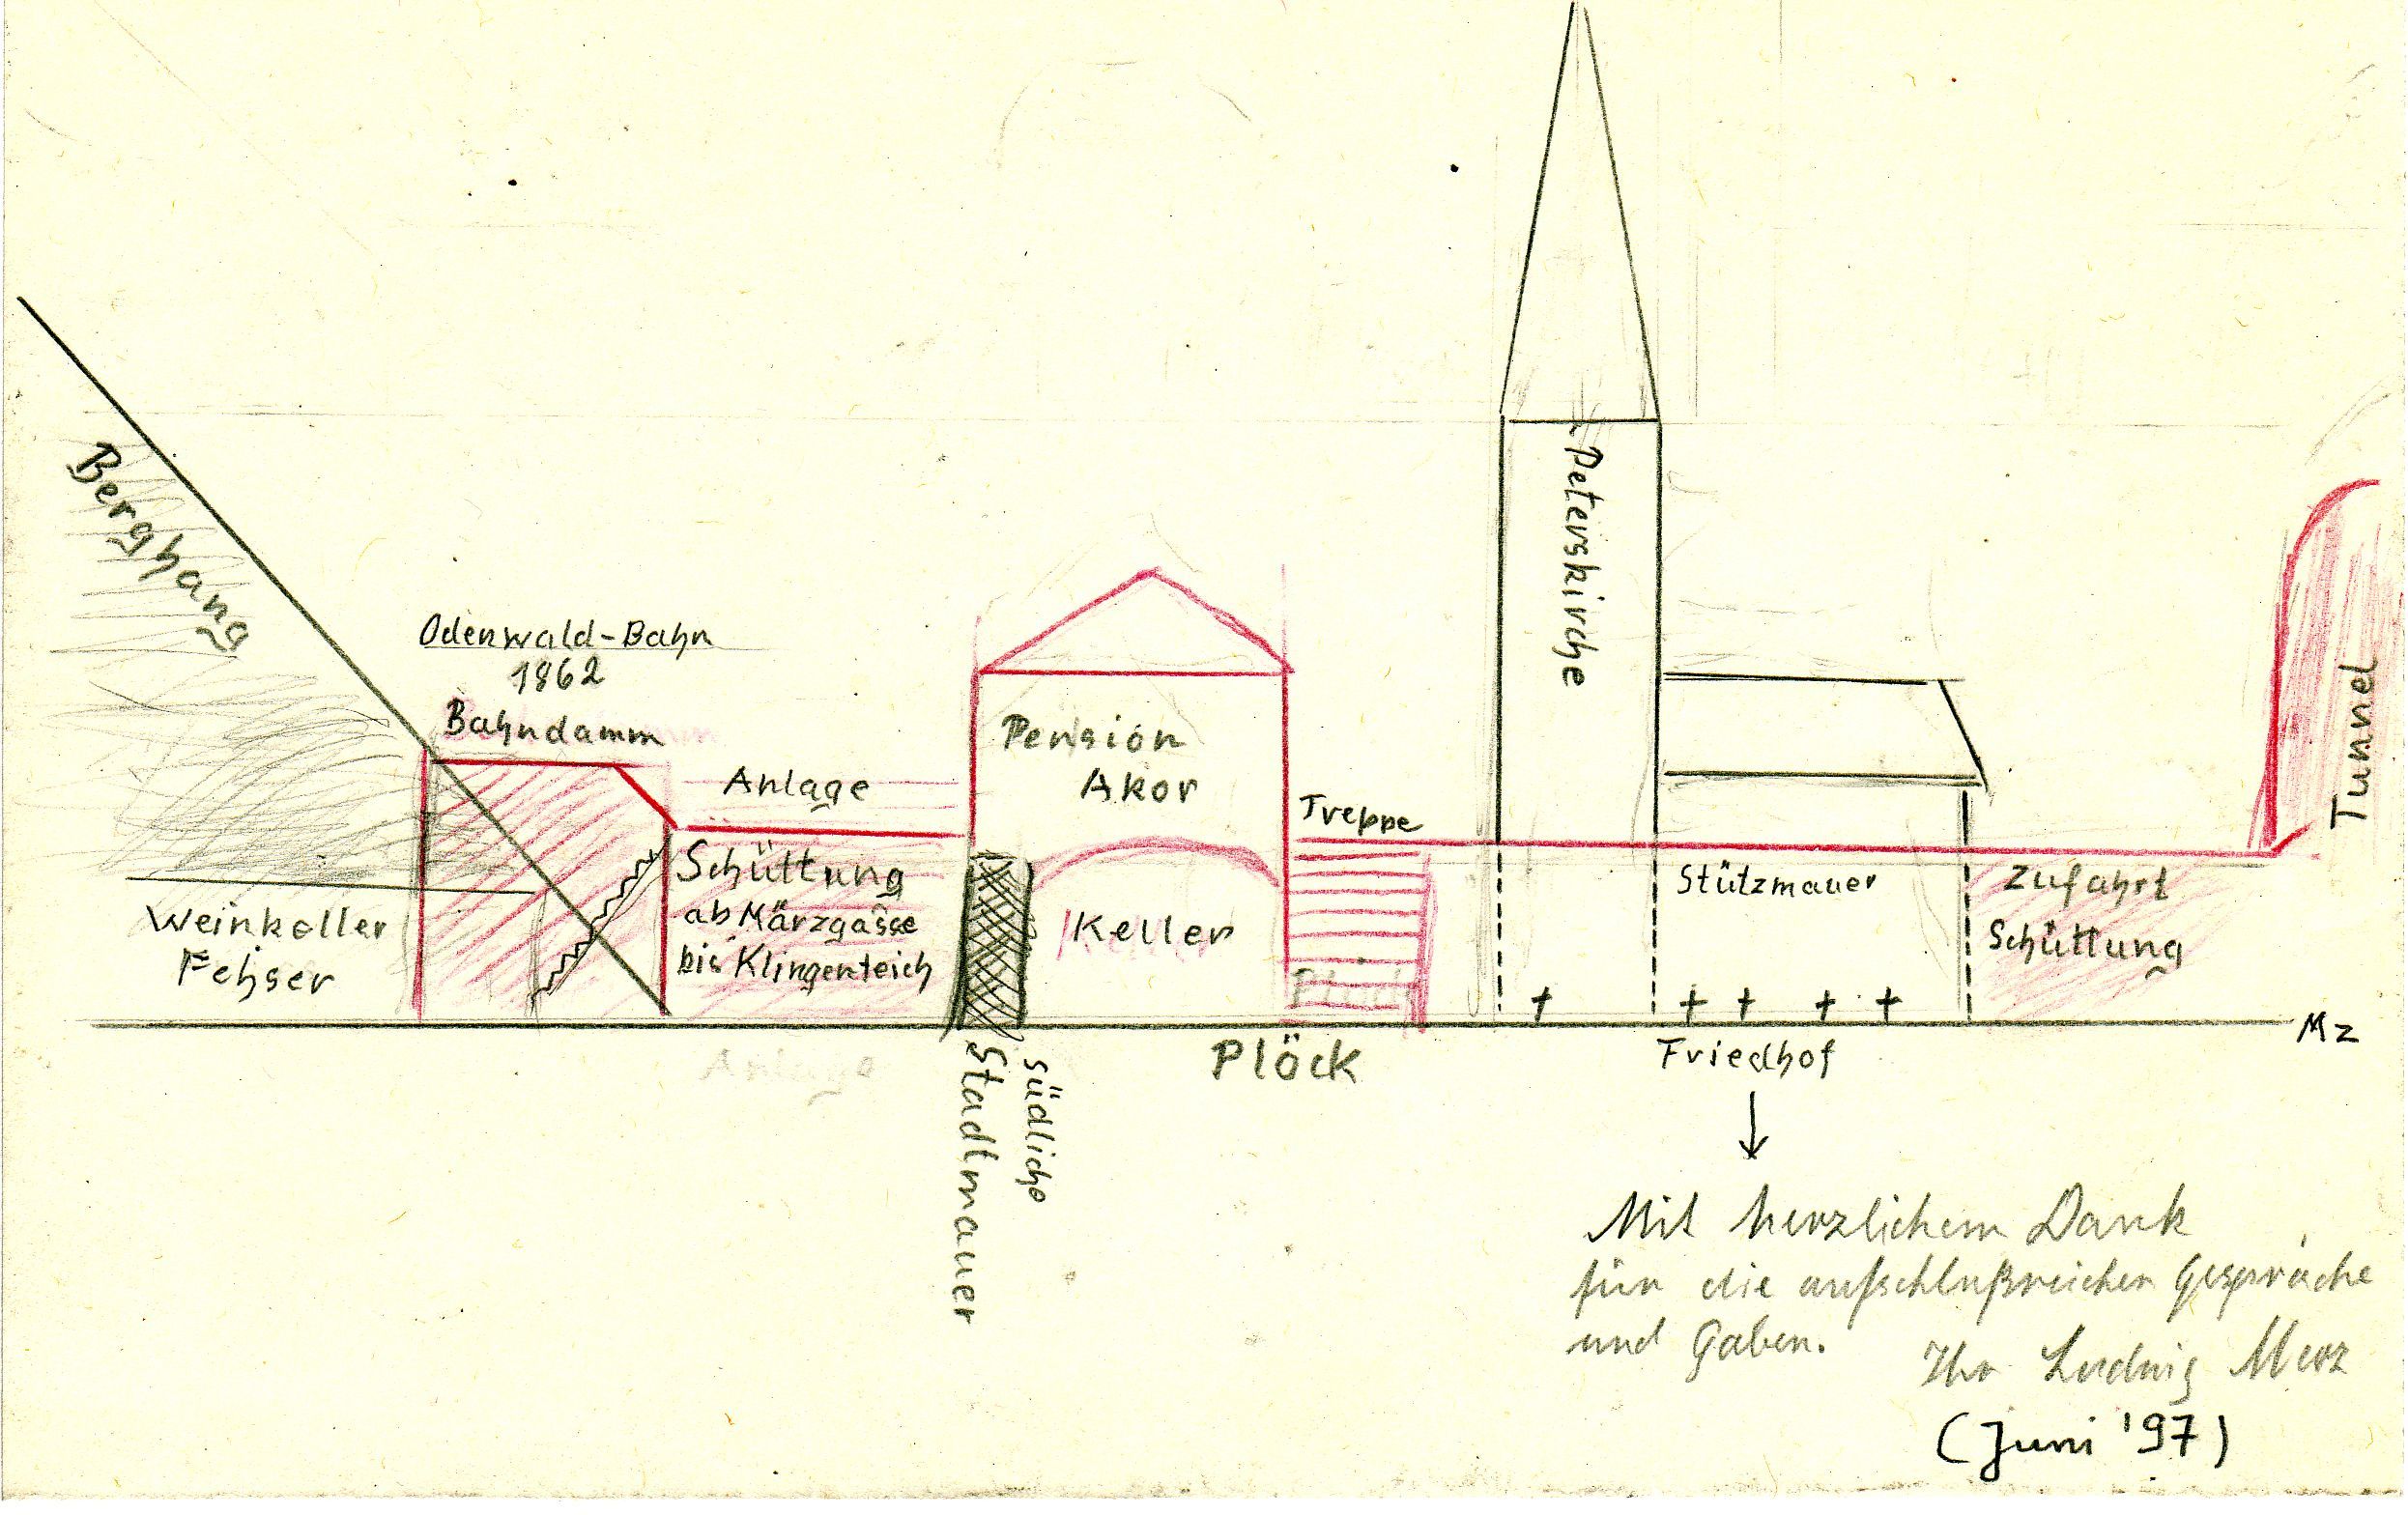 Berghang
Odenwald-Bahn
1862
Bahndamm
Weinkeller
Fehser
Anlage
Schüttung
ab Märzgasse
bis Klingenteich
Pension
Akor
Keller
Südliche
Stadtmauer
Anlage
Treppe
Plöck
Plöck
Peterskirche
Stützmauer
Friedhof
Zufahrt
Schüttung
Tunnel
Mz
Mit herzlichem Dank
für die aufschlußreichen Gespräche
und Gaben.
Ihr Ludwig Merz
(Juni '97)